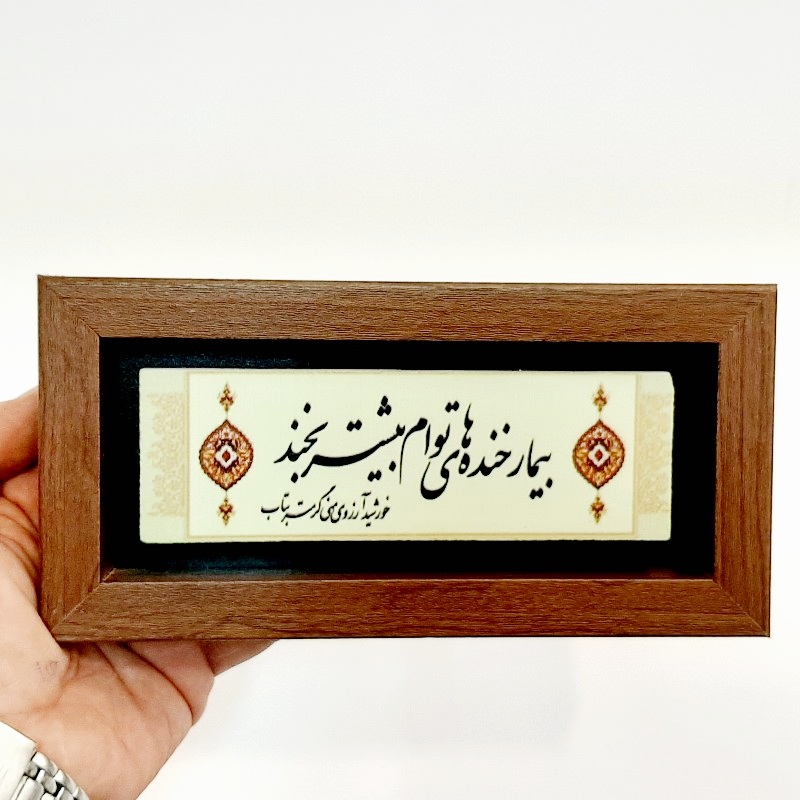 بیمار خنده های توام بیشتر بخند
خورشید آرزوی منی گرمتر بتاب